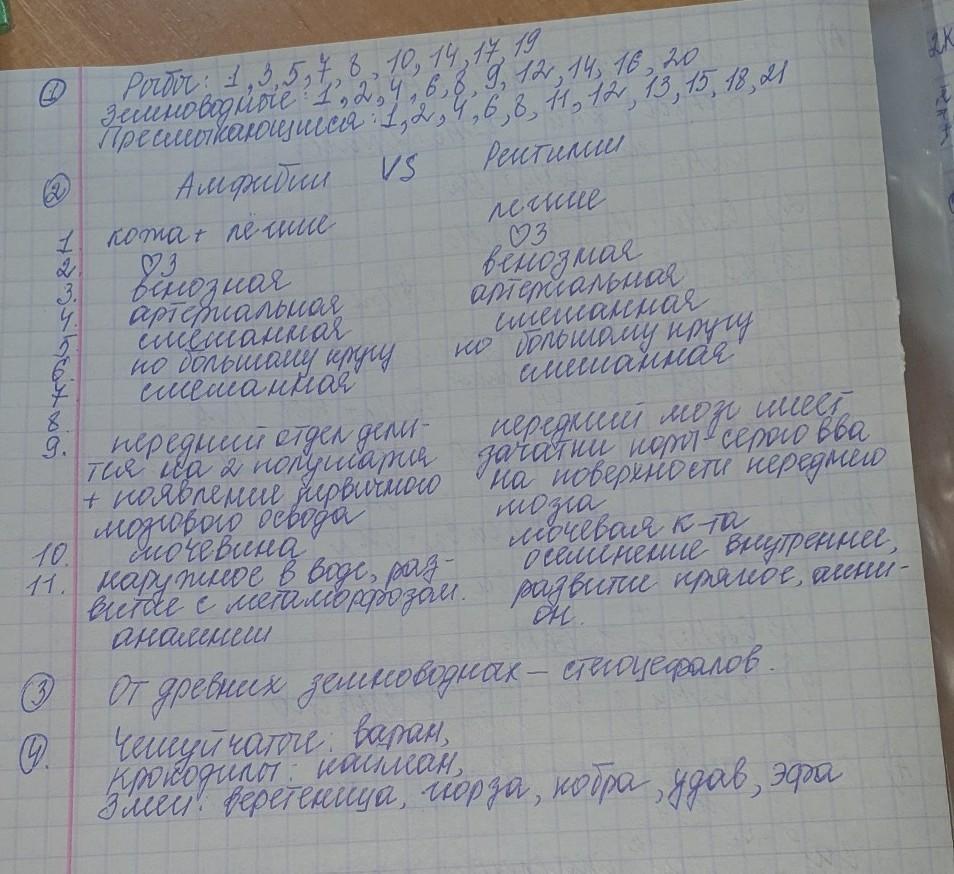 ① Рыбы: 1, 3, 5, 7, 8, 10, 14, 17, 19
Земноводные: 1, 2, 4, 6, 8, 9, 12, 14, 16, 20
Пресмыкающиеся: 1, 2, 4, 6, 8, 11, 12, 13, 15, 18, 21
② Амфибии VS Рептилии
1. кожа + лёгкие легкие
2. ♡3 ♡3
3. венозная венозная
4. артериальная артериальная
5. смешанная смешанная
6. по большому кругу по большому кругу
7. смешанная смешанная
8.
9. передний отдел дели- передний мозг имеет
тся на 2 полушария зачатки коры-серого в-ва
+ появление первичного на поверхности переднего
мозгового свода мозга
10. мочевина мочевая к-та
11. наружное в воде, раз- осеменение внутреннее,
витие с метаморфозом. развитие прямое, амни-
анамнии он.
③ От древних земноводных – стегоцефалов.
④. Чешуйчатые: варан,
крокодилы: кайман,
Змеи: веретеница, гюрза, кобра, удав, эфа